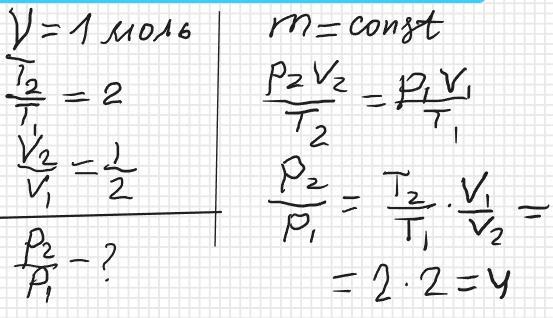 ν = 1 моль
T₂/T₁ = 2
V₂/V₁ = 1/2
p₂/p₁ - ?
m = const
p₂V₂/T₂ = p₁V₁/T₁
p₂/p₁ = T₂/T₁ · V₁/V₂ =
= 2 · 2 = 4